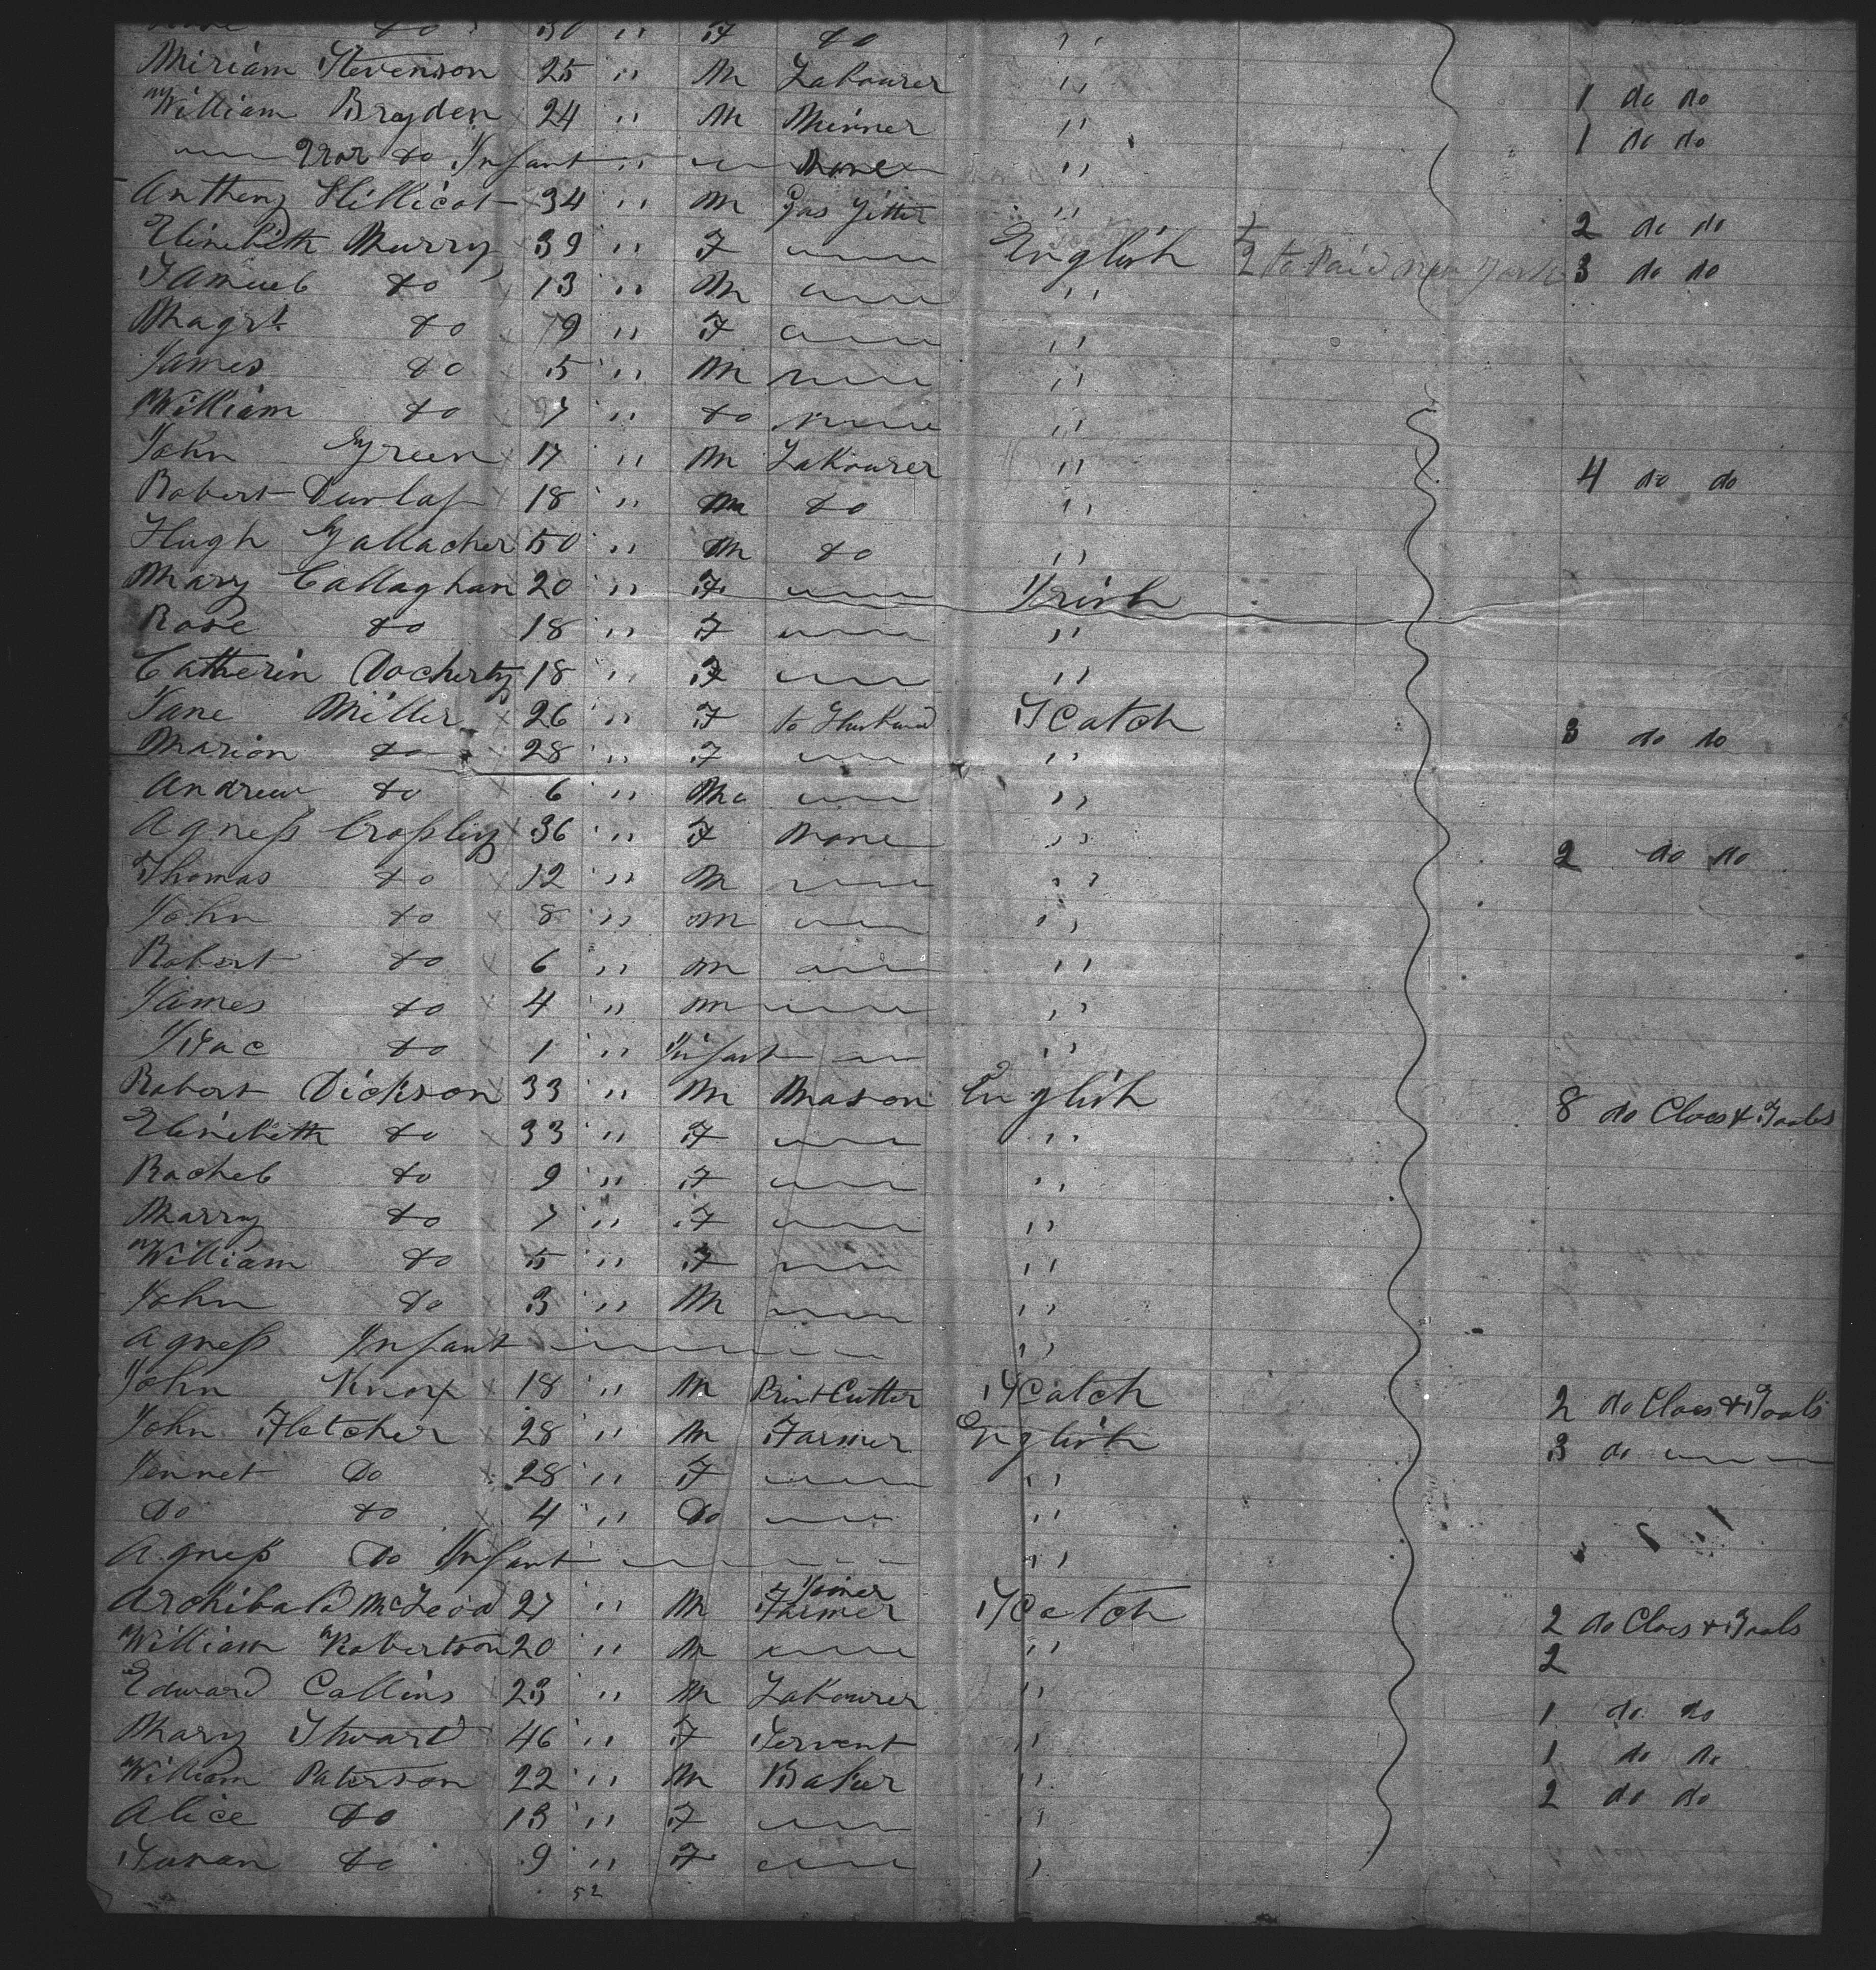 do 30 " F do "
Miriam Stevenson 25 " M Labourer " 1 do do
William Bryden 24 " M Minner " 1 do do
do Infant " None "
Anthony Hillicot 34 " M Gas Fitter " 2 do do
Elinebeth Murry 39 " F English 3 do do
Samuel do 13 " M "
Magrt do 9 " F "
James do 5 " M "
William do 7 " do "
John Green 17 " M Labourer " 4 do do
Robert Dunlap 18 " M do "
Hugh Gallacher 50 " M do "
Mary Callaghan 20 " F Irish
Rose do 18 " F "
Catherin Docherty 18 " F "
Jane Miller 26 " F to Husband Scotch 3 do do
Marion do 28 " F "
Andrew do 6 " M "
Agness Crossley 36 " F None " 2 do do
Thomas do 12 " M "
John do 8 " M "
Robert do 6 " M "
James do 4 " M "
Isac do 1 " Infant "
Robert Dickson 33 " M Mason English 8 do Cloes & Tooles
Elinebeth do 33 " F "
Rachel do 9 " F "
Marry do 7 " F "
William do 5 " F "
John do 3 " M "
Agness Infant "
John Knox 18 " M Print Cutter Scotch 2 do Cloes & Tools
John Fletcher 28 " M Farmer English 3 do
Jennet Do 28 " F "
Do do 4 " Do "
Agness Do Infant "
Joiner
Archibald McLeod 27 " M Farmer Scotch 2 do Cloes & Tools
William Robertson 20 " M " 2
Edward Collins 23 " M Labourer " 1 do do
Mary Stuart 46 " F Servent " 1 do do
William Paterson 22 " M Baker " 2 do do
Alice do 13 " F "
Susan do 9 " F "
52